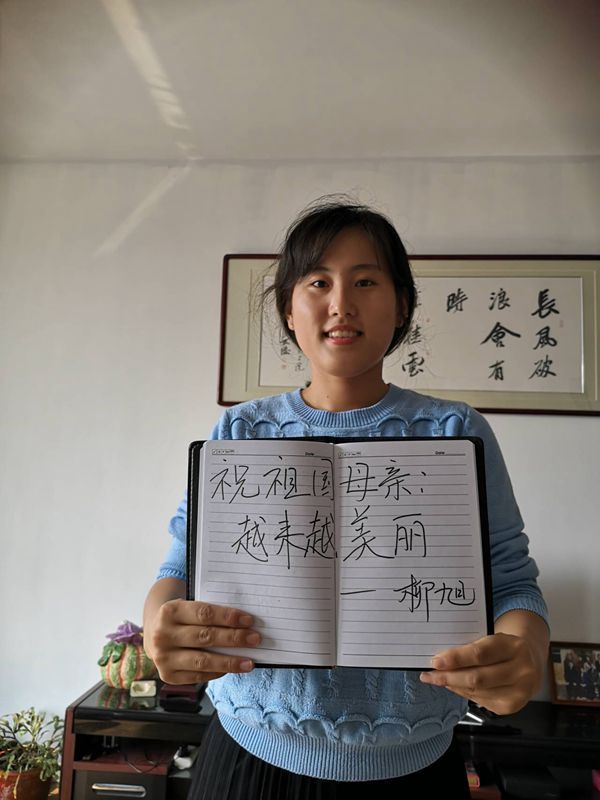 Date
Date
祝祖国母亲:
越来越美丽
— 柳旭
長風破
浪會有
時
雲